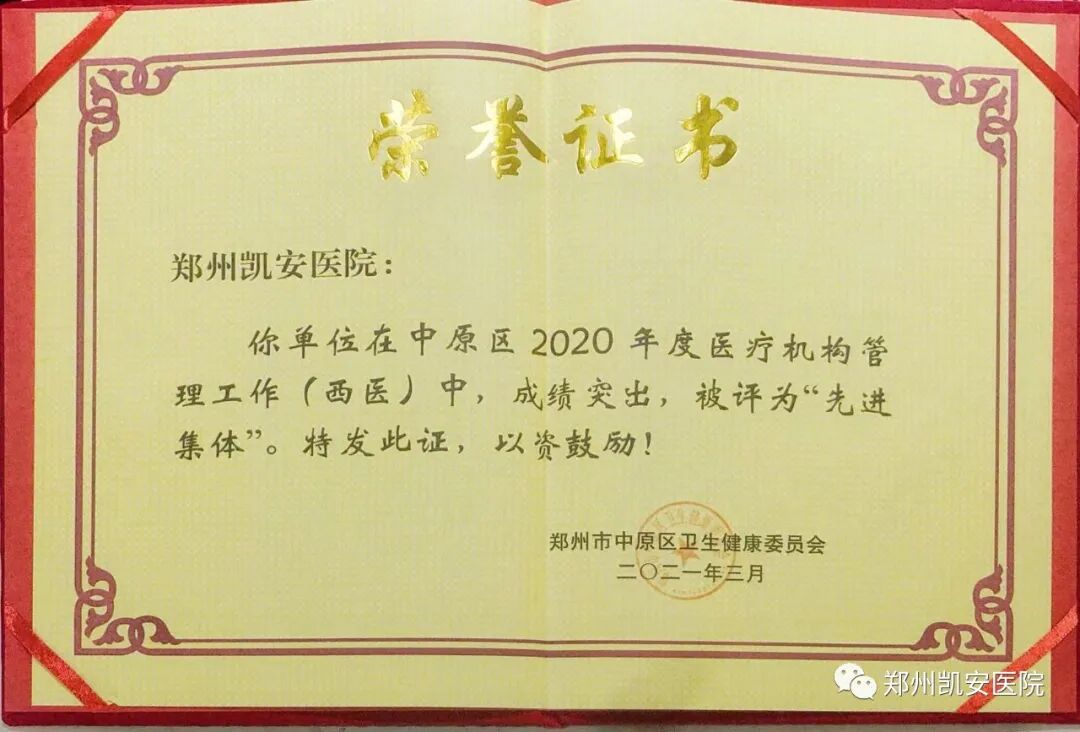 荣誉证书
郑州凯安医院：
你单位在中原区2020年度医疗机构管
理工作（西医）中，成绩突出，被评为“先进
集体”。特发此证，以资鼓励！
郑州市中原区卫生健康委员会
二〇二一年三月
郑州凯安医院